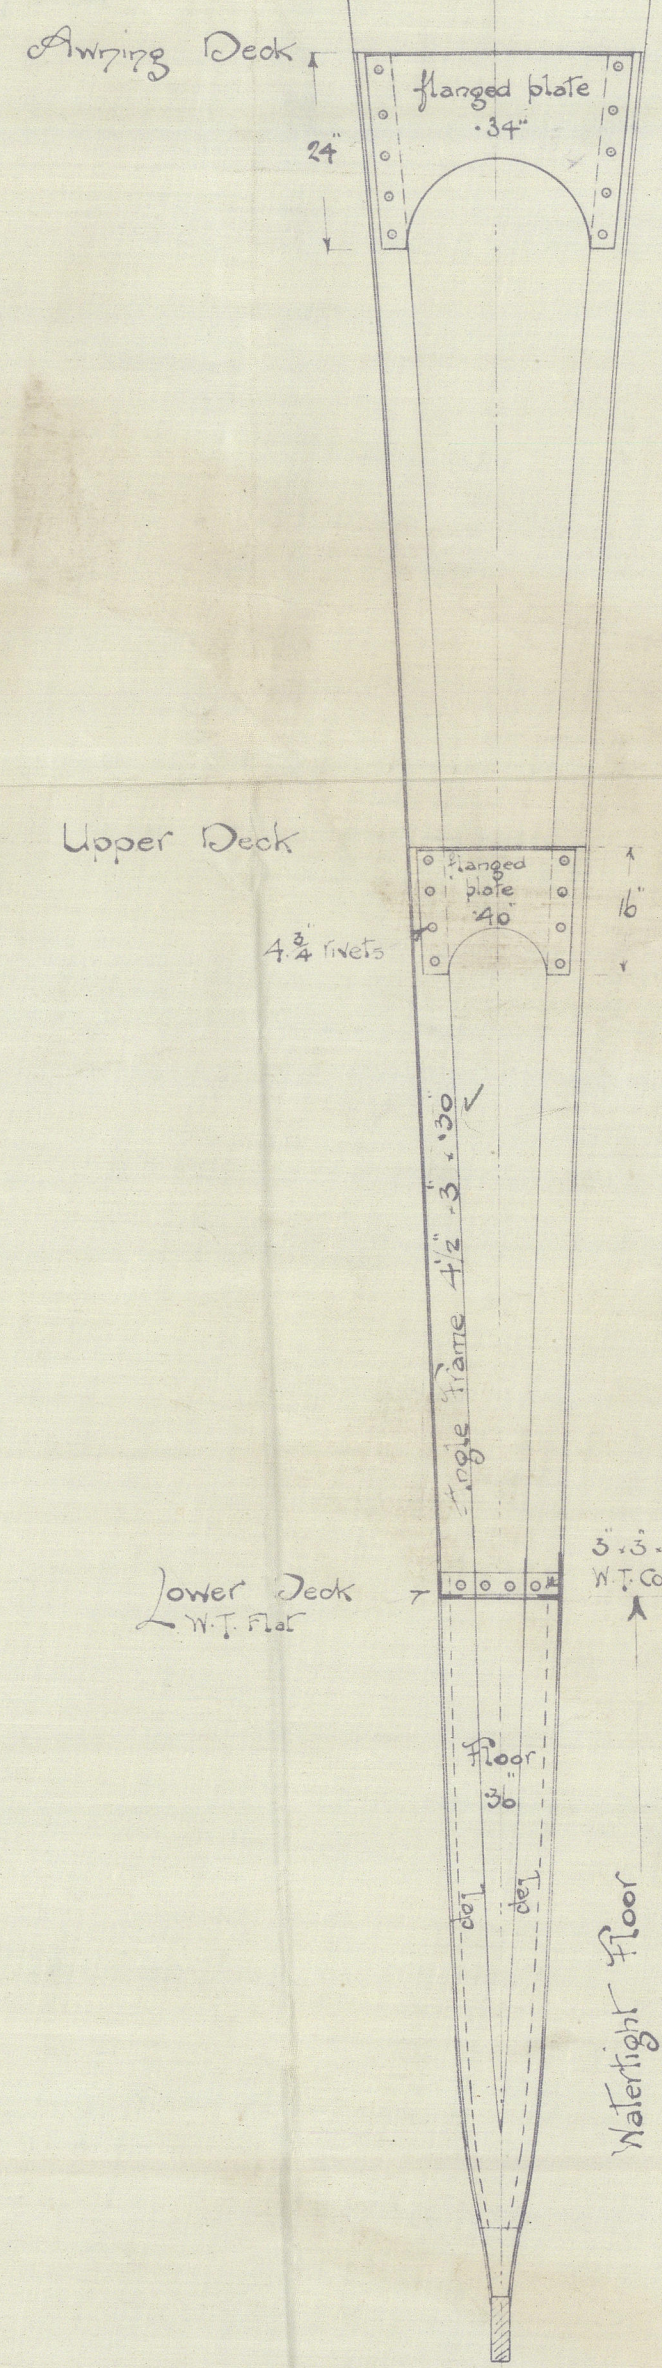 Awning Deck
flanged plate
·34"
24"
Upper Deck
flanged
plate
·40"
16"
4.¾" rivets
Angle Frame 4½" - 3" × ·30"
3" × 3" ×
W.T. Co
Lower Deck
W.T. Flat
Floor
·36"
Watertight Floor